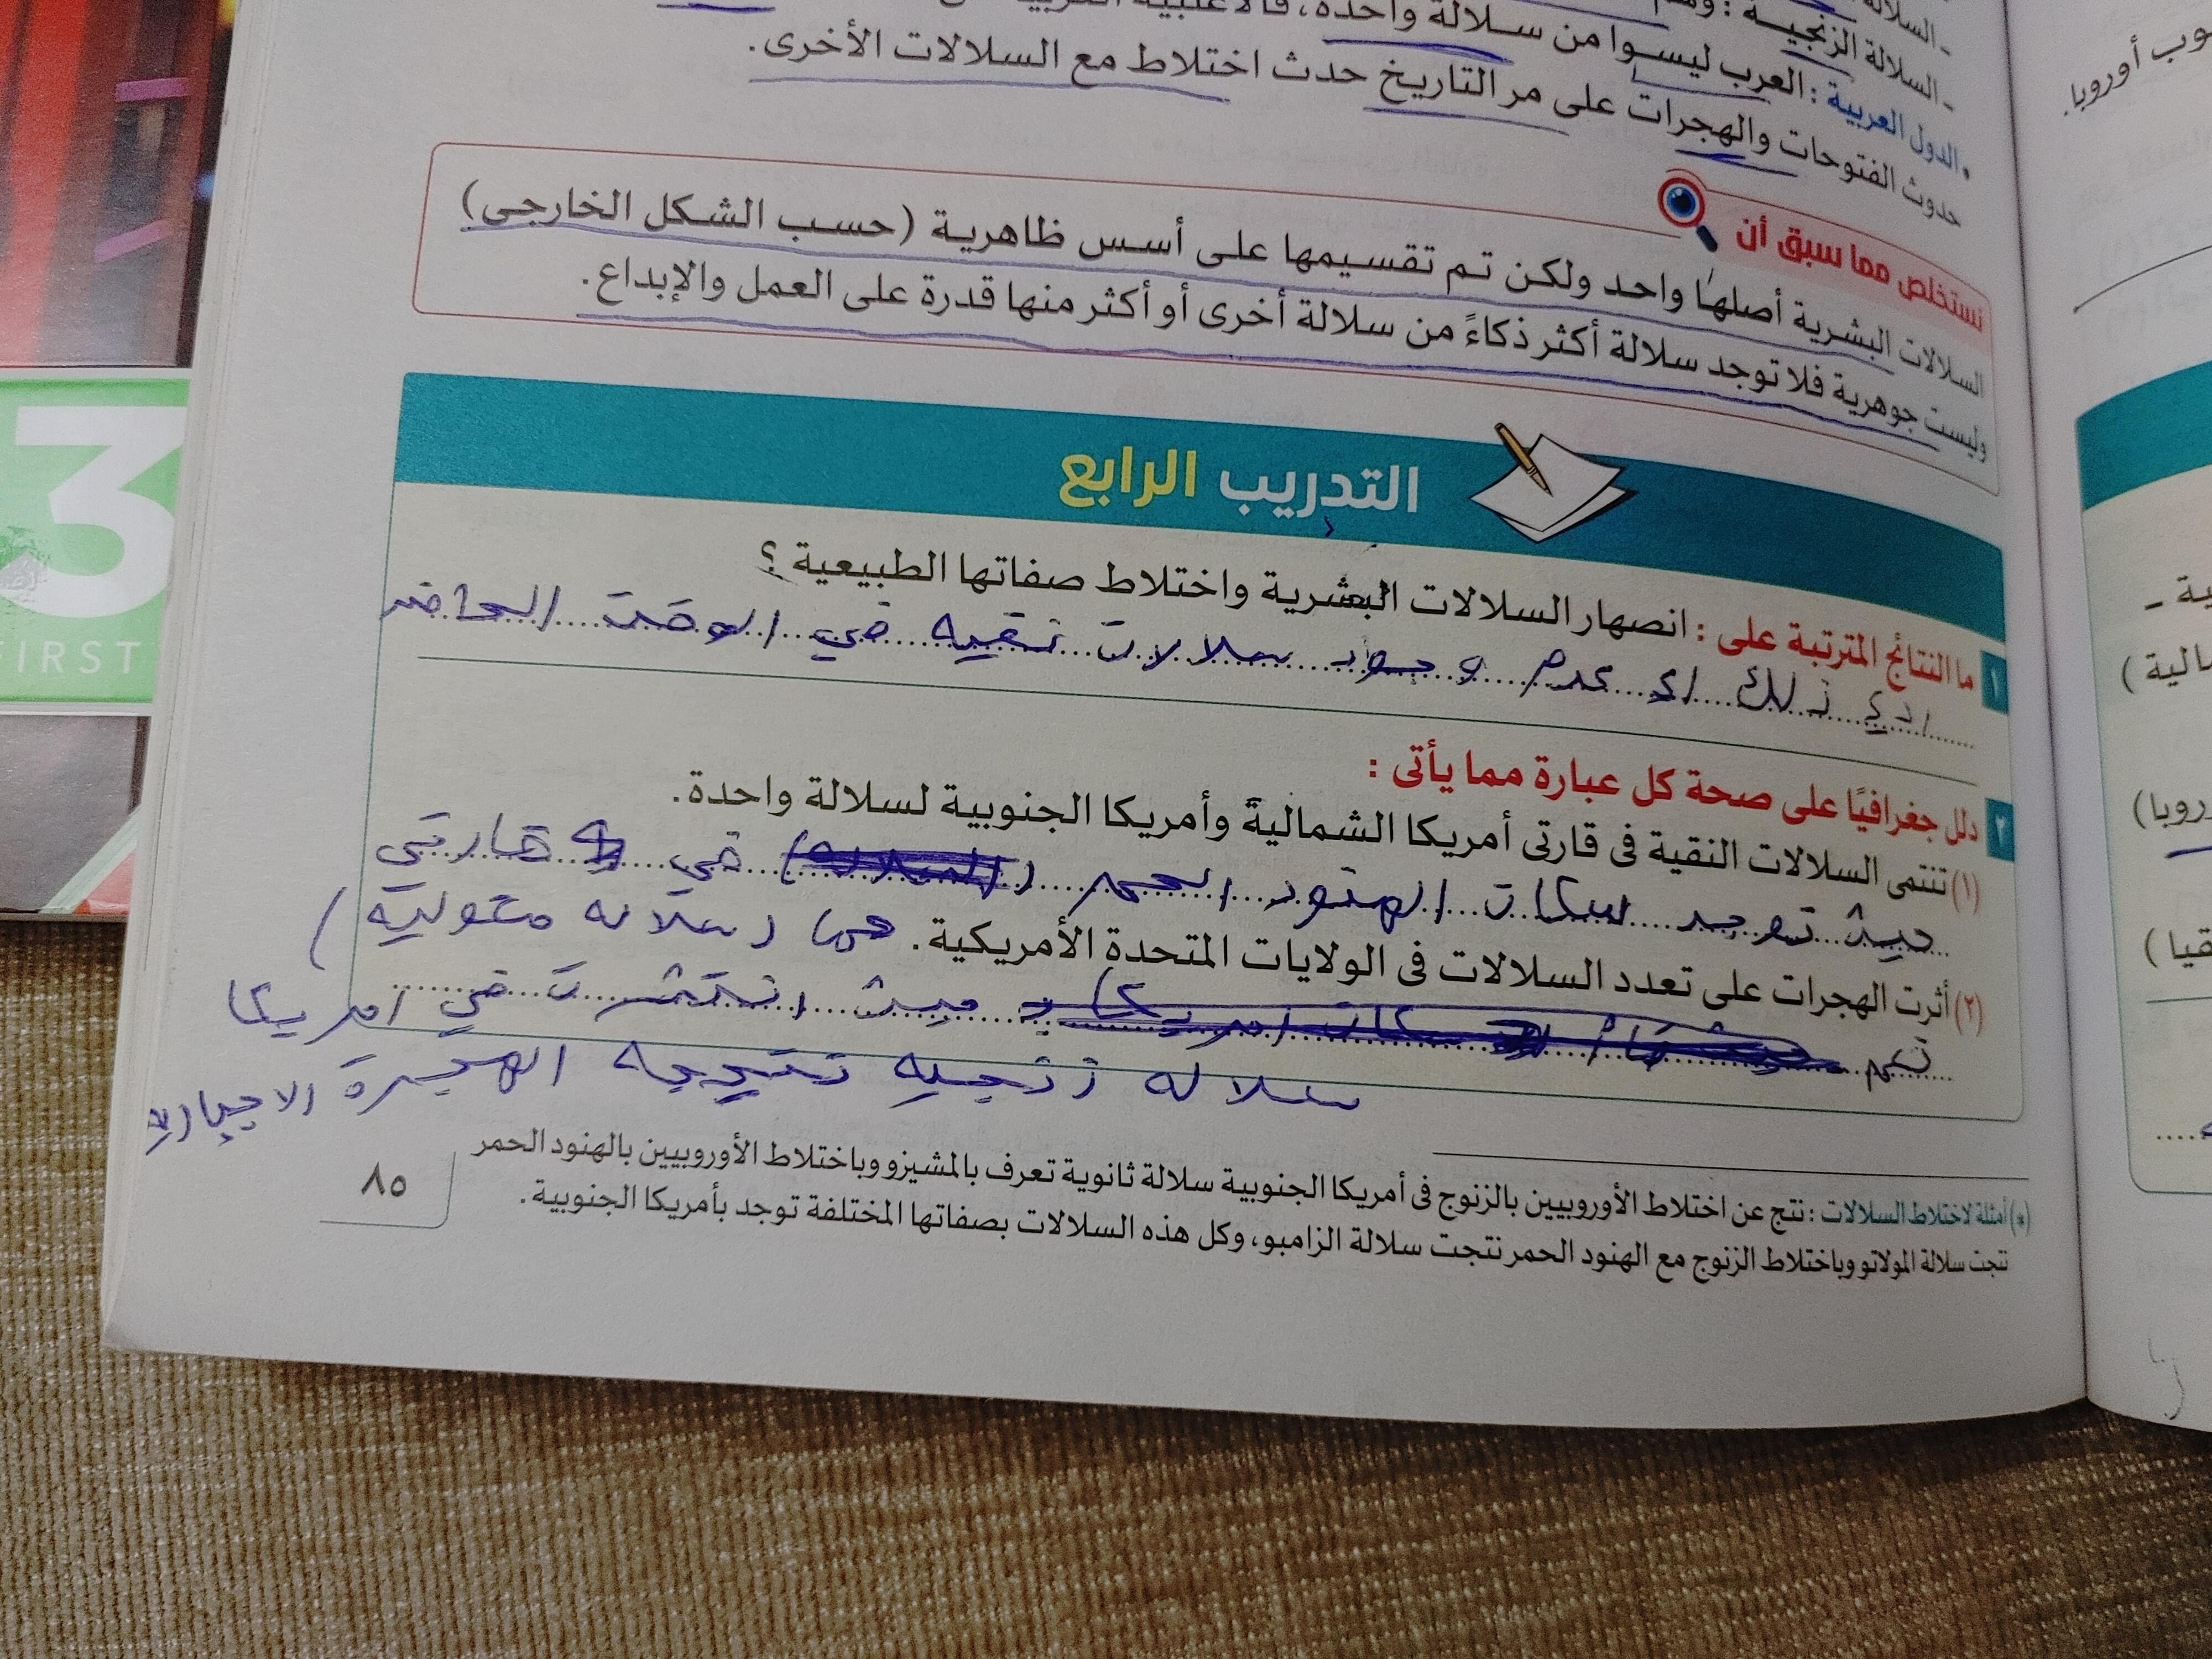 ـ السلالة
ـ السلالة الزنجية :
• الدول العربية : العرب ليسوا من سلالة واحدة، فالأغلبية
حدوث الفتوحات والهجرات على مر التاريخ حدث اختلاط مع السلالات الأخرى.
نستخلص مما سبق أن
السلالات البشرية أصلها واحد ولكن تم تقسيمها على أسس ظاهرية (حسب الشكل الخارجى)
وليست جوهرية فلا توجد سلالة أكثر ذكاءً من سلالة أخرى أو أكثر منها قدرة على العمل والإبداع.
التدريب الرابع
١ ما النتائج المترتبة على : انصهار السلالات البشرية واختلاط صفاتها الطبيعية ؟
ادى ذلك الى عدم وجود سلالات نقيه في الوقت الحاضر
٢ دلل جغرافيًا على صحة كل عبارة مما يأتى :
(١) تنتمى السلالات النقية فى قارتى أمريكا الشمالية وأمريكا الجنوبية لسلالة واحدة.
حيث توجد السكان الهنود الحمر في قارتي
هما (سلاله مغولية)
(٢) أثرت الهجرات على تعدد السلالات فى الولايات المتحدة الأمريكية.
نعم حيث انتشرت في امريكا
سلاله زنجيه نتيجه الهجرة الاجباريه
(*) أمثلة لاختلاط السلالات : نتج عن اختلاط الأوروبيين بالزنوج فى أمريكا الجنوبية سلالة ثانوية تعرف بالمشيزو وباختلاط الأوروبيين بالهنود الحمر
نتجت سلالة المولاتو وباختلاط الزنوج مع الهنود الحمر نتجت سلالة الزامبو، وكل هذه السلالات بصفاتها المختلفة توجد بأمريكا الجنوبية.
٨٥
3
FIRST
وب أوروبا.
ية ـ
الية )
روبا)
قيا )